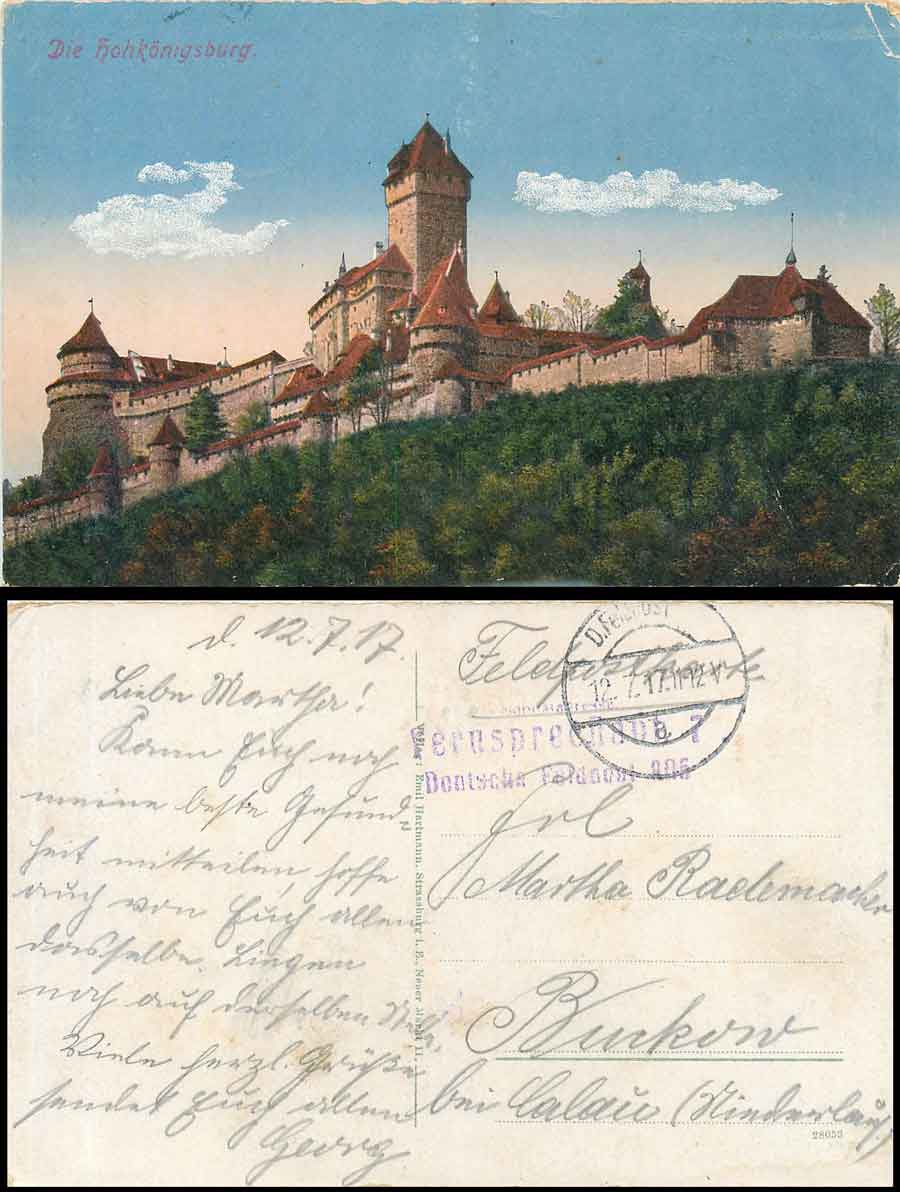 Die Hohkönigsburg.
d. 12.7.17.
Liebe Martha!
Kann Euch noch
meine beste Gesund,
heit mitteilen, hoffe
auch von Euch allen
dasselbe. Liegen
noch auf derselben
Viele herzl. Grüße
sendet Euch allen
Georg
Verlag: Emil Hartmann, Strassburg i. E., Neuer Markt 11.
Feldpostkarte
D. Feldpost
12. 7. 17. 11-12 V
a
ernsprechabt 7
Deutsche Feldpost
Frl
Martha Rademacher
Buckow
bei Calau (Niederlaus
28053